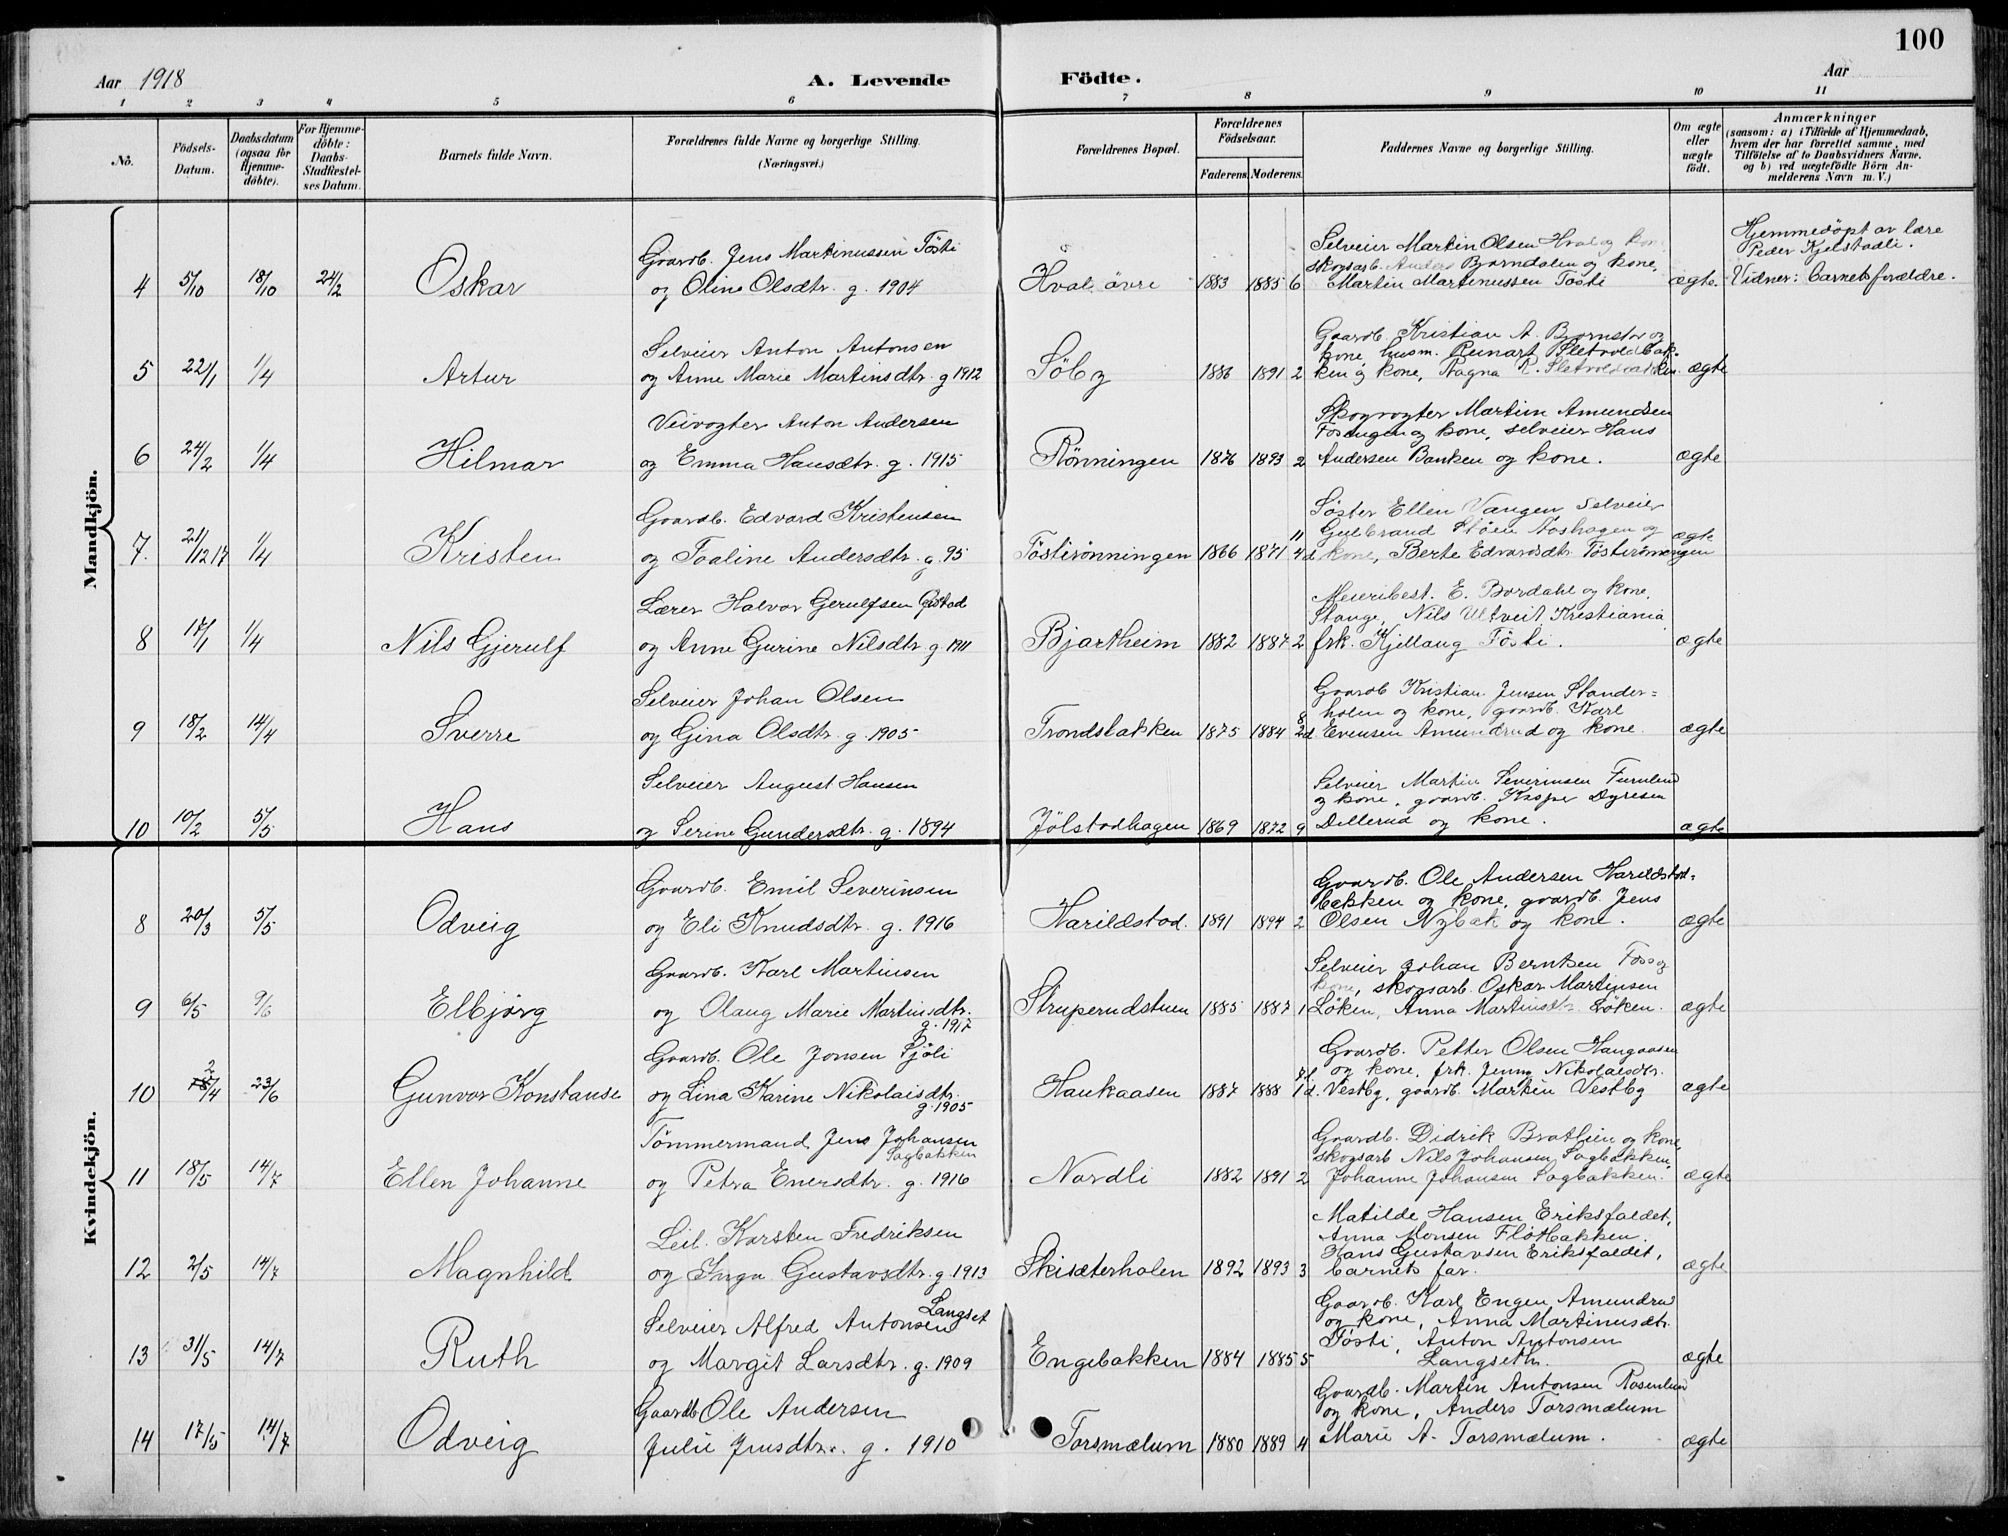 100
Aar 1918
A. Levende Födte.
Aar
1 2 3 4 5 6 7 8 9 10 11
No.
Födsels-Datum.
Daabsdatum (ogsaa för Hjemme-döbte).
For Hjemme-döbte: Daabs-Stadfæstel-ses Datum.
Barnets fulde Navn.
Forældrenes fulde Navne og borgerlige Stilling. (Næringsvei.)
Forældrenes Bopæl.
Forældrenes Födselsaar.
Faderens. Moderens.
Faddernes Navne og borgerlige Stilling.
Om ægte eller uægte födt.
Anmærkninger
(saasom: a) i Tilfælde af Hjemmedaab,
hvem der har forrettet samme, med
Tilföielse af to Daabsvidners Navne,
og b) ved uægtefödte Börn An-
melderens Navn m. V.)
Mandkjön.
Gaardb. Jens Martinussen Tösti
Selveier Martin Olsen Hval og kone
Hjemmedöpt av lære
skogsarb. Anders Bjørndalen og kone,
Peder Kjelstadli.
4 5/10 18/10 24/2 Oskar og Oline Olsdtr. g. 1904 Hval övre 1883 1885 6 Martin Martinussen Tösti ægte. Vidner: barnets forældre.
Selveier Anton Antonsen
Gaardb. Kristian A. Bjørnstad og
kone, husm. Reinart Sletvoldbak-
5 22/1 1/4 Artur og Anne Marie Martinsdtr. g 1912 Söby 1886 1891 2 ken og kone, Ragna R. Sletvoldbakken ægte
Veivogter Anton Andersen
Skogvogter Martin Amundsen
og kone, selveier Hans
6 24/2 1/4 Hilmar og Emma Hansdtr. g. 1915 Rönningen 1876 1893 2 Andersen Banken og kone. ægte
Gaardb. Edvard Kristensen
Søster Ellen Vangen, selveier
Gulbrand Støen Aashagen og
7. 21/12 17 1/4 Kristen og Toaline Andersdtr. g. 95 Töstirönningen 1866 1871 11 4 d kone, Berte Edvardsdtr. Töstirönningen ægte
Lærer Halvor Gerulfsen Gjestad
Meieribest. E. Bordahl og kone,
Stange, Nils Ultveit, Kristiania
8 17/1 1/4 Nils Gjerulf og Anne Gurine Nilsdtr. g. 1911 Bjartheim 1882 1887 2 frk. Kjellaug Tösti. ægte
Selveier Johan Olsen
Gaardb Kristian Jensen Stander=
holen og kone, gaardb. Karl
9 18/2 14/4 Sverre og Gina Olsdtr. g. 1905 Trondsbakken 1875 1884 8 2d. Evensen Amundrud og kone. ægte
Selveier August Hansen
Selveier Martin Severinsen Furulund
og kone, gaardb. Kasper Dyresen
10 10/2 5/5 Hans og Serine Gundersdtr. g. 1894 Jölstadhagen 1869 1872 9 Dillerud og kone. ægte
Kvindekjön.
Gaardb. Emil Severinsen
Gaardb. Ole Andersen Harildstad=
bakken og kone, gaardb. Jens
8 20/3 5/5 Odveig og Eli Knudsdtr. g. 1916 Harildstad. 1891 1894 2 Olsen Nybak og kone. ægte
Gaardb. Karl Martinsen
Selveier Johan Berntsen Foss og
kone, skogsarb. Oskar Martinsen
9 6/5 9/6 Elbjørg og Olaug Marie Martinsdtr. g. 1917 Struperudstuen 1885 1887 1 Löken, Anna Martinsdtr. Löken. ægte
Gaardb. Ole Jonsen Sjöli
Gaardb. Petter Olsen Haugaasen
og kone, frk. Jenny Nikolaisdtr.
10 2/4 23/6 Gunvor Konstanse og Lina Karine Nikolaisdtr. g. 1905 Haukaasen 1887 1888 1d. Vestby, gaardb. Martin Vestby ægte
Tömmermand Jens Johansen Sagbakken
Gaardb. Didrik Brathen og kone,
skogsarb Nils Johansen Sagbakken,
11 18/5 14/7 Ellen Johanne og Petra Enersdtr. g. 1916 Nordli 1882 1891 2 Johanne Johansen Sagbakken. ægte
Leil. Karsten Fredriksen
Matilde Hansen Eriksfaldet,
Anna Monsen Flötbakken.
Hans Gustavsen Eriksfaldet,
12 2/5 14/7 Magnhild og Inga Gustavsdtr. g. 1913 Skisæterholen 1892 1893 3 barnets far. ægte
Selveier Alfred Antonsen Langset
Gaardb. Karl Engen Amundrud
og kone, Anna Martinusdtr.
Tösti, Anton Antonsen
13 31/5 14/7 Ruth og Margit Larsdtr. g. 1909 Engebakken 1884 1885 5 Langseth. ægte
Gaardb. Ole Andersen
Gaardb. Martin Antonsen Rosenlund
og kone, Anders Torsmælum
14 17/5 14/7 Odveig Julie Jensdtr. g. 1910 Torsmælum 1880 1889 4 Marie A. Torsmælum. ægte